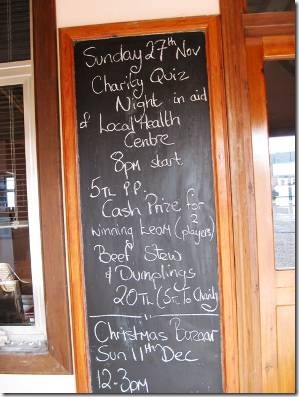 Sunday 27th Nov
Charity Quiz
Night in aid
of Local Health
Centre
8pm start
5TL P.P.
Cash Prize for
winning team (2 players)
Beef Stew
& Dumplings
20TL (5TL To Charity
Christmas Bazaar
Sun 11th Dec
12-3pm